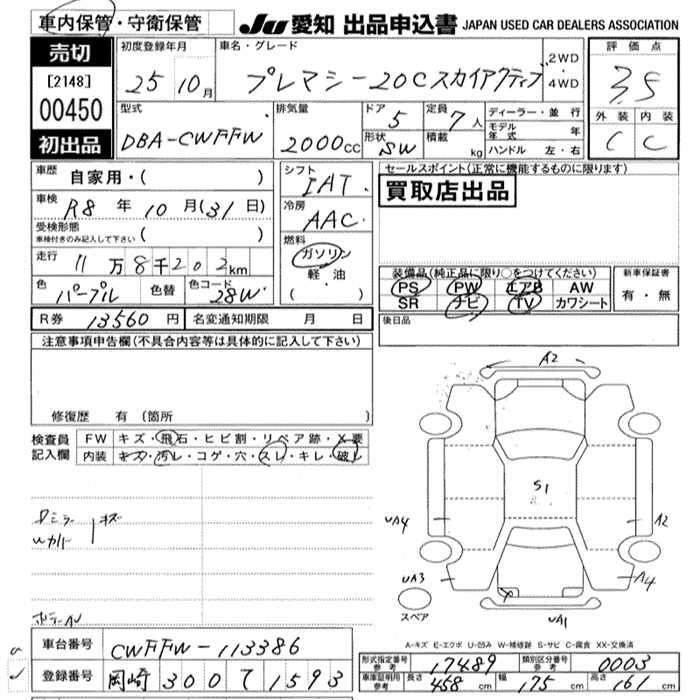 車内保管・守衛保管
JU 愛知 出品申込書 JAPAN USED CAR DEALERS ASSOCIATION
売切
[2148]
00450
初出品
初度登録年月
25 10月
車名・グレード
プレマシー20Cスカイアクティブ
2WD
・
4WD
評価点
3.5
外装 内装
C C
型式
DBA-CWFFW
排気量
2000cc
ドア
5
形状
SW
定員
7人
積載
kg
ディーラー・並行
モデル年式 年
ハンドル 左・右
車歴
自家用・( )
車検
R8年10月(31日)
受検形態
車検付きのみ記入して下さい ( )
走行
11万8千202km
色
パープル
色替
色コード
28W
シフト
IAT
冷房
AAC
燃料
ガソリン
軽・油
( ・ )
セールスポイント(正常に機能するものに限ります)
買取店出品
装備品(純正品に限り○をつけてください)
PS PW エアB AW
SR ナビ TV カワシート
新車保証書
有・無
後日品
R券 13560円
名変通知期限 月 日
注意事項申告欄(不具合内容等は具体的に記入して下さい)
修復歴 有(箇所 )
検査員
記入欄
FW キズ・飛石・ヒビ割・リペア跡・X要
内装 キズ・汚レ・コゲ・穴・スレ・キレ・破レ
Dミラー
キズ
A2
S1
UA4
A2
UA3
A4
UA1
スペア
A-キズ E-エクボ U-凹み W-補修跡 S-サビ C-腐食 XX-交換済
車台番号
CWFFW-113386
登録番号
岡崎 300 て 1593
形式指定番号
参考
17489
類別区分番号
参考
0003
車庫証明用
参考
長さ 458cm
幅 175cm
高さ 161cm